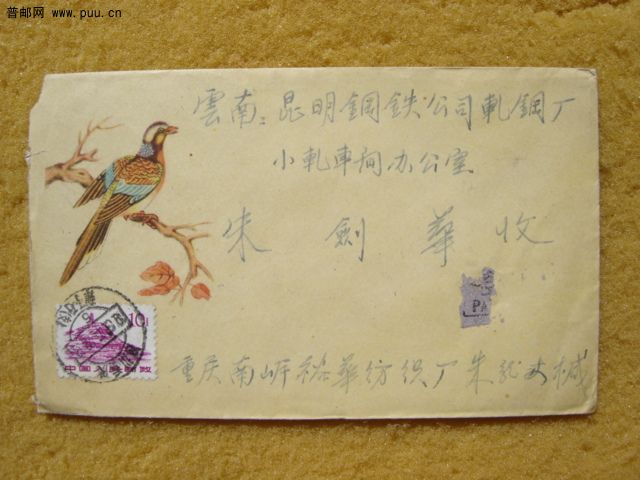 普邮网 www.puu.cn
雲南：昆明鋼鉄公司軋鋼厂
小軋車间办公室
朱劍華收
10
中国人民邮政
PA
重庆南岸裕華纺织厂朱